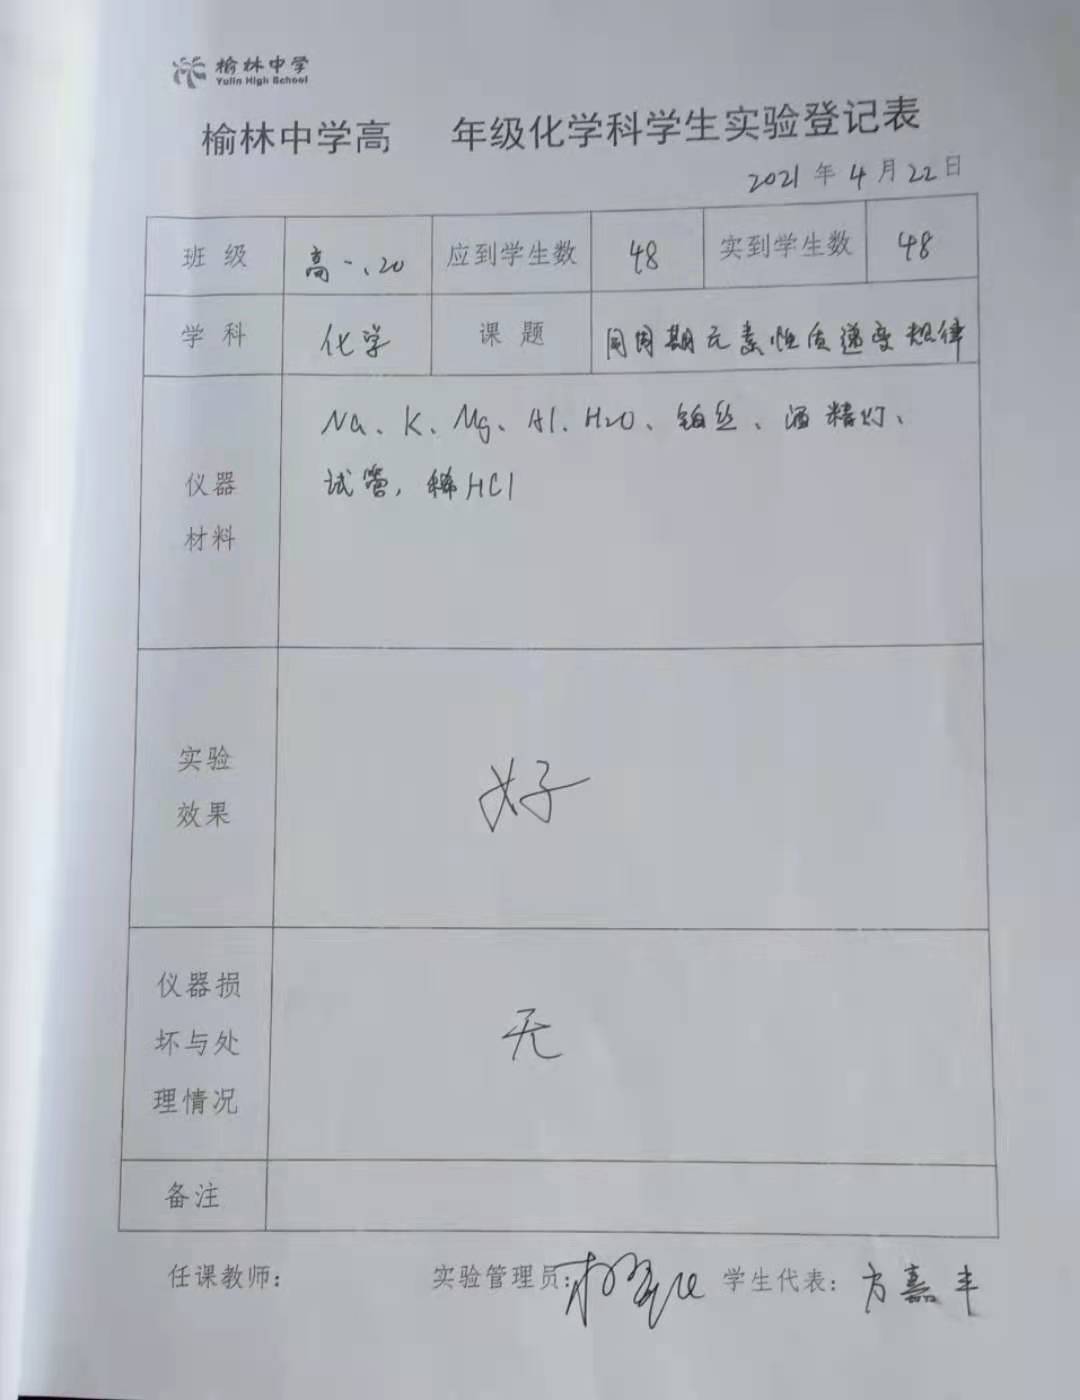 榆林中学
Yulin High School
榆林中学高 年级化学科学生实验登记表
2021年4月22日
班级 高一、20 应到学生数 48 实到学生数 48
学科 化学 课题 同周期元素性质递变规律
仪器
材料
Na、K、Mg、Al、H2O、铂丝、酒精灯、
试管，稀HCl
实验
效果
好
仪器损
坏与处
理情况
无
备注
任课教师： 实验管理员： 学生代表：方嘉丰